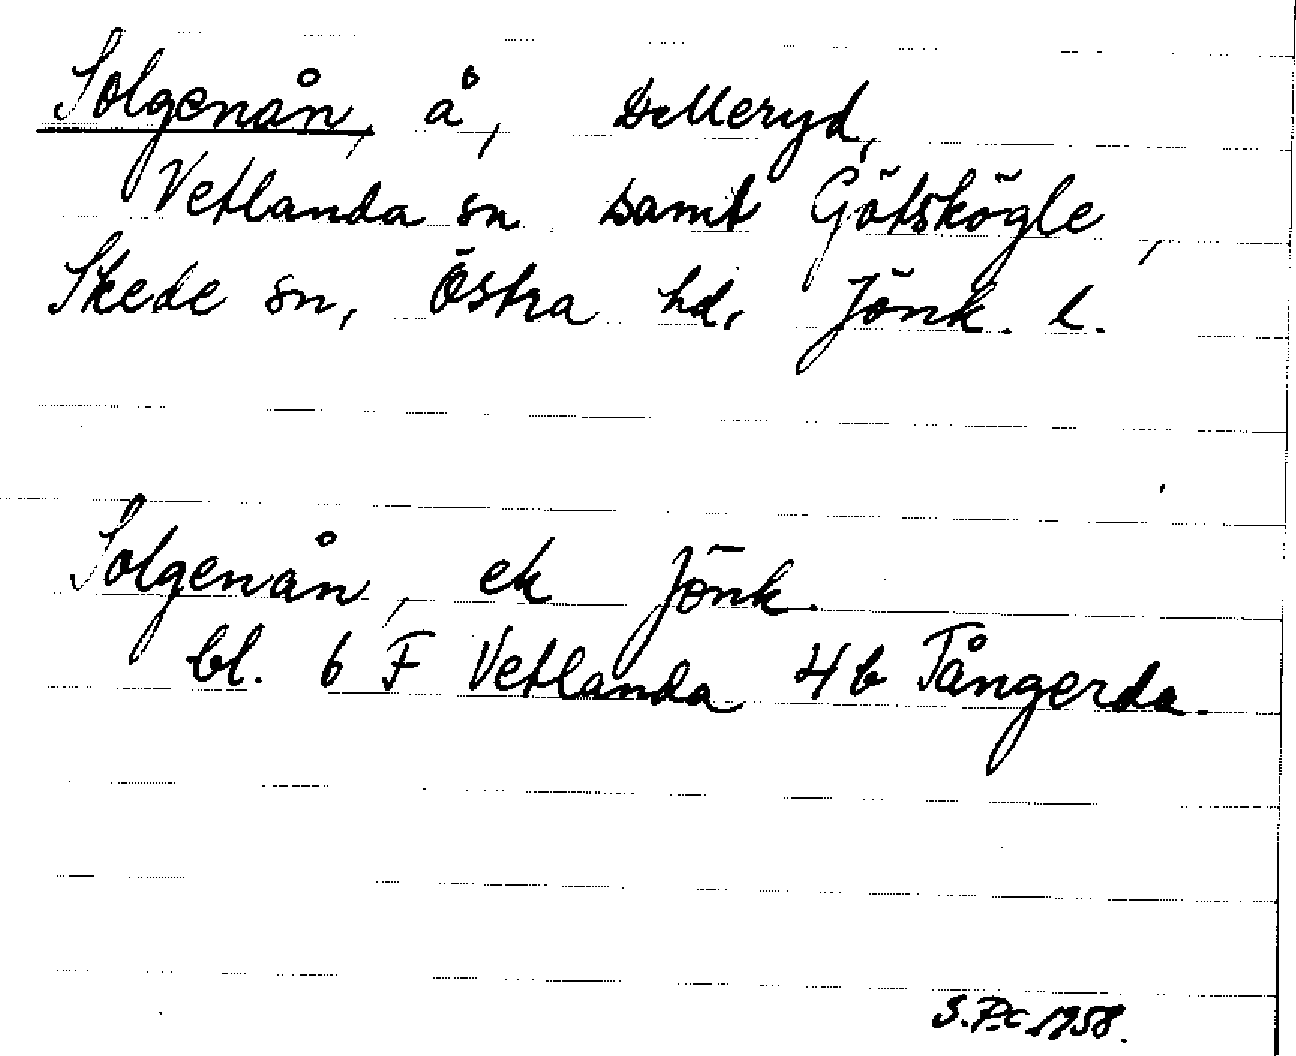 Solgenån, å, Delleryd,
Vetlanda sn samt Götskögle,
Skede sn, Östra hd, Jönk. l.
Solgenån, ek Jönk.
bl. 6 F Vetlanda 4 b Tångerda.
S.P.C 1958.